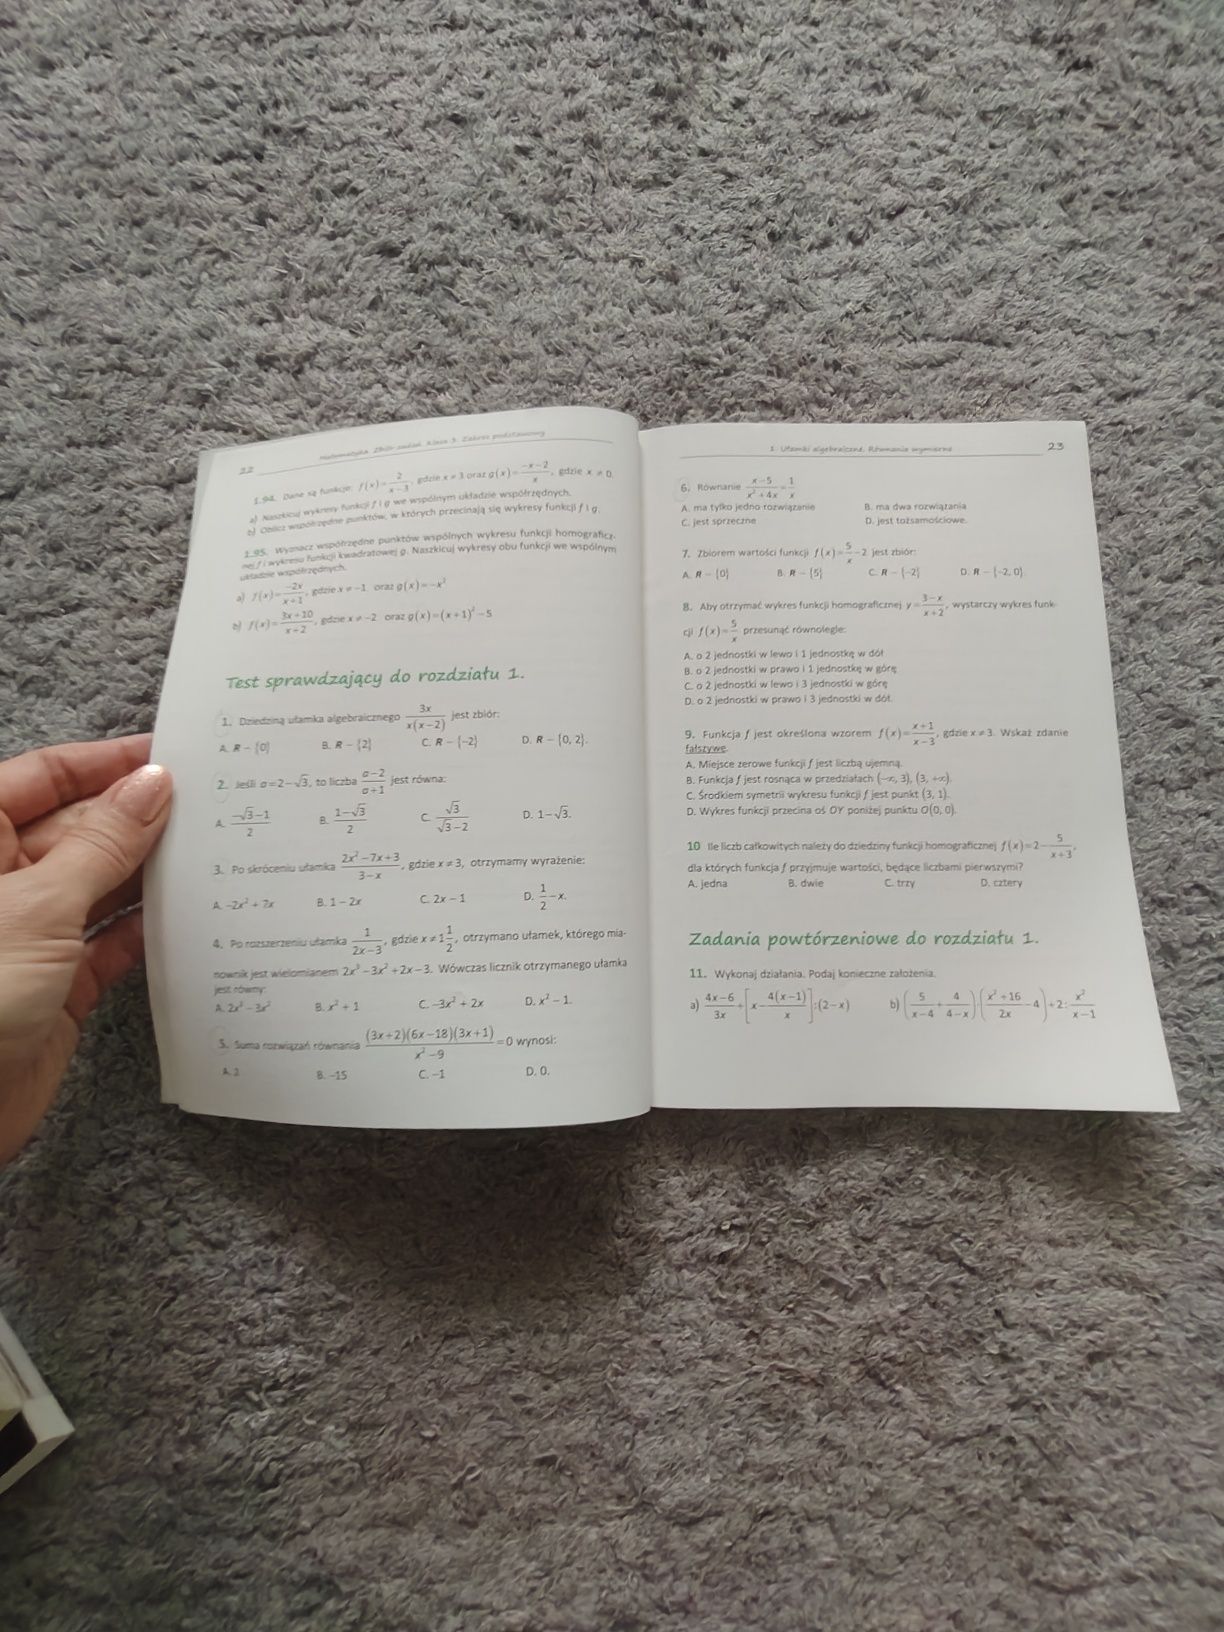 22 Matematyka. Zbiór zadań. Klasa 3. Zakres podstawowy
1.94. Dane są funkcje: f(x)=2/(x−3), gdzie x≠3 oraz g(x)=(−x−2)/x, gdzie x≠0.
a) Naszkicuj wykresy funkcji f i g we wspólnym układzie współrzędnych.
b) Oblicz współrzędne punktów, w których przecinają się wykresy funkcji f i g.
1.95. Wyznacz współrzędne punktów wspólnych wykresu funkcji homograficz-
nej f i wykresu funkcji kwadratowej g. Naszkicuj wykresy obu funkcji we wspólnym
układzie współrzędnych.
a) f(x)=−2x/(x+1), gdzie x≠−1 oraz g(x)=−x²
b) f(x)=(3x+10)/(x+2), gdzie x≠−2 oraz g(x)=(x+1)²−5
Test sprawdzający do rozdziału 1.
1. Dziedziną ułamka algebraicznego 3x/(x(x−2)) jest zbiór:
A. R−{0} B. R−{2} C. R−{−2} D. R−{0, 2}.
2. Jeśli a=2−√3, to liczba (a−2)/(a+1) jest równa:
A. (−√3−1)/2 B. (1−√3)/2 C. √3/(√3−2) D. 1−√3.
3. Po skróceniu ułamka (2x²−7x+3)/(3−x), gdzie x≠3, otrzymamy wyrażenie:
A. −2x²+7x B. 1−2x C. 2x−1 D. 1/2−x.
4. Po rozszerzeniu ułamka 1/(2x−3), gdzie x≠1 1/2, otrzymano ułamek, którego mia-
nownik jest wielomianem 2x³−3x²+2x−3. Wówczas licznik otrzymanego ułamka
jest równy:
A. 2x³−3x² B. x²+1 C. −3x²+2x D. x²−1.
5. Suma rozwiązań równania ((3x+2)(6x−18)(3x+1))/(x²−9)=0 wynosi:
A. 2 B. −15 C. −1 D. 0.
1. Ułamki algebraiczne. Równania wymierne 23
6. Równanie (x−5)/(x²+4x)=1/x
A. ma tylko jedno rozwiązanie B. ma dwa rozwiązania
C. jest sprzeczne D. jest tożsamościowe.
7. Zbiorem wartości funkcji f(x)=5/x−2 jest zbiór:
A. R−{0} B. R−{5} C. R−{−2} D. R−{−2, 0}.
8. Aby otrzymać wykres funkcji homograficznej y=(3−x)/(x+2), wystarczy wykres funk-
cji f(x)=5/x przesunąć równolegle:
A. o 2 jednostki w lewo i 1 jednostkę w dół
B. o 2 jednostki w prawo i 1 jednostkę w górę
C. o 2 jednostki w lewo i 3 jednostki w górę
D. o 2 jednostki w prawo i 3 jednostki w dół.
9. Funkcja f jest określona wzorem f(x)=(x+1)/(x−3), gdzie x≠3. Wskaż zdanie
fałszywe.
A. Miejsce zerowe funkcji f jest liczbą ujemną.
B. Funkcja f jest rosnąca w przedziałach (−∞, 3), (3, +∞).
C. Środkiem symetrii wykresu funkcji f jest punkt (3, 1).
D. Wykres funkcji przecina oś OY poniżej punktu O(0, 0).
10 Ile liczb całkowitych należy do dziedziny funkcji homograficznej f(x)=2−5/(x+3),
dla których funkcja f przyjmuje wartości, będące liczbami pierwszymi?
A. jedna B. dwie C. trzy D. cztery
Zadania powtórzeniowe do rozdziału 1.
11. Wykonaj działania. Podaj konieczne założenia.
a) (4x−6)/3x+[x−4(x−1)/x]:(2−x) b) (5/(x−4)+4/(4−x)):((x²+16)/2x−4)+2:x²/(x−1)